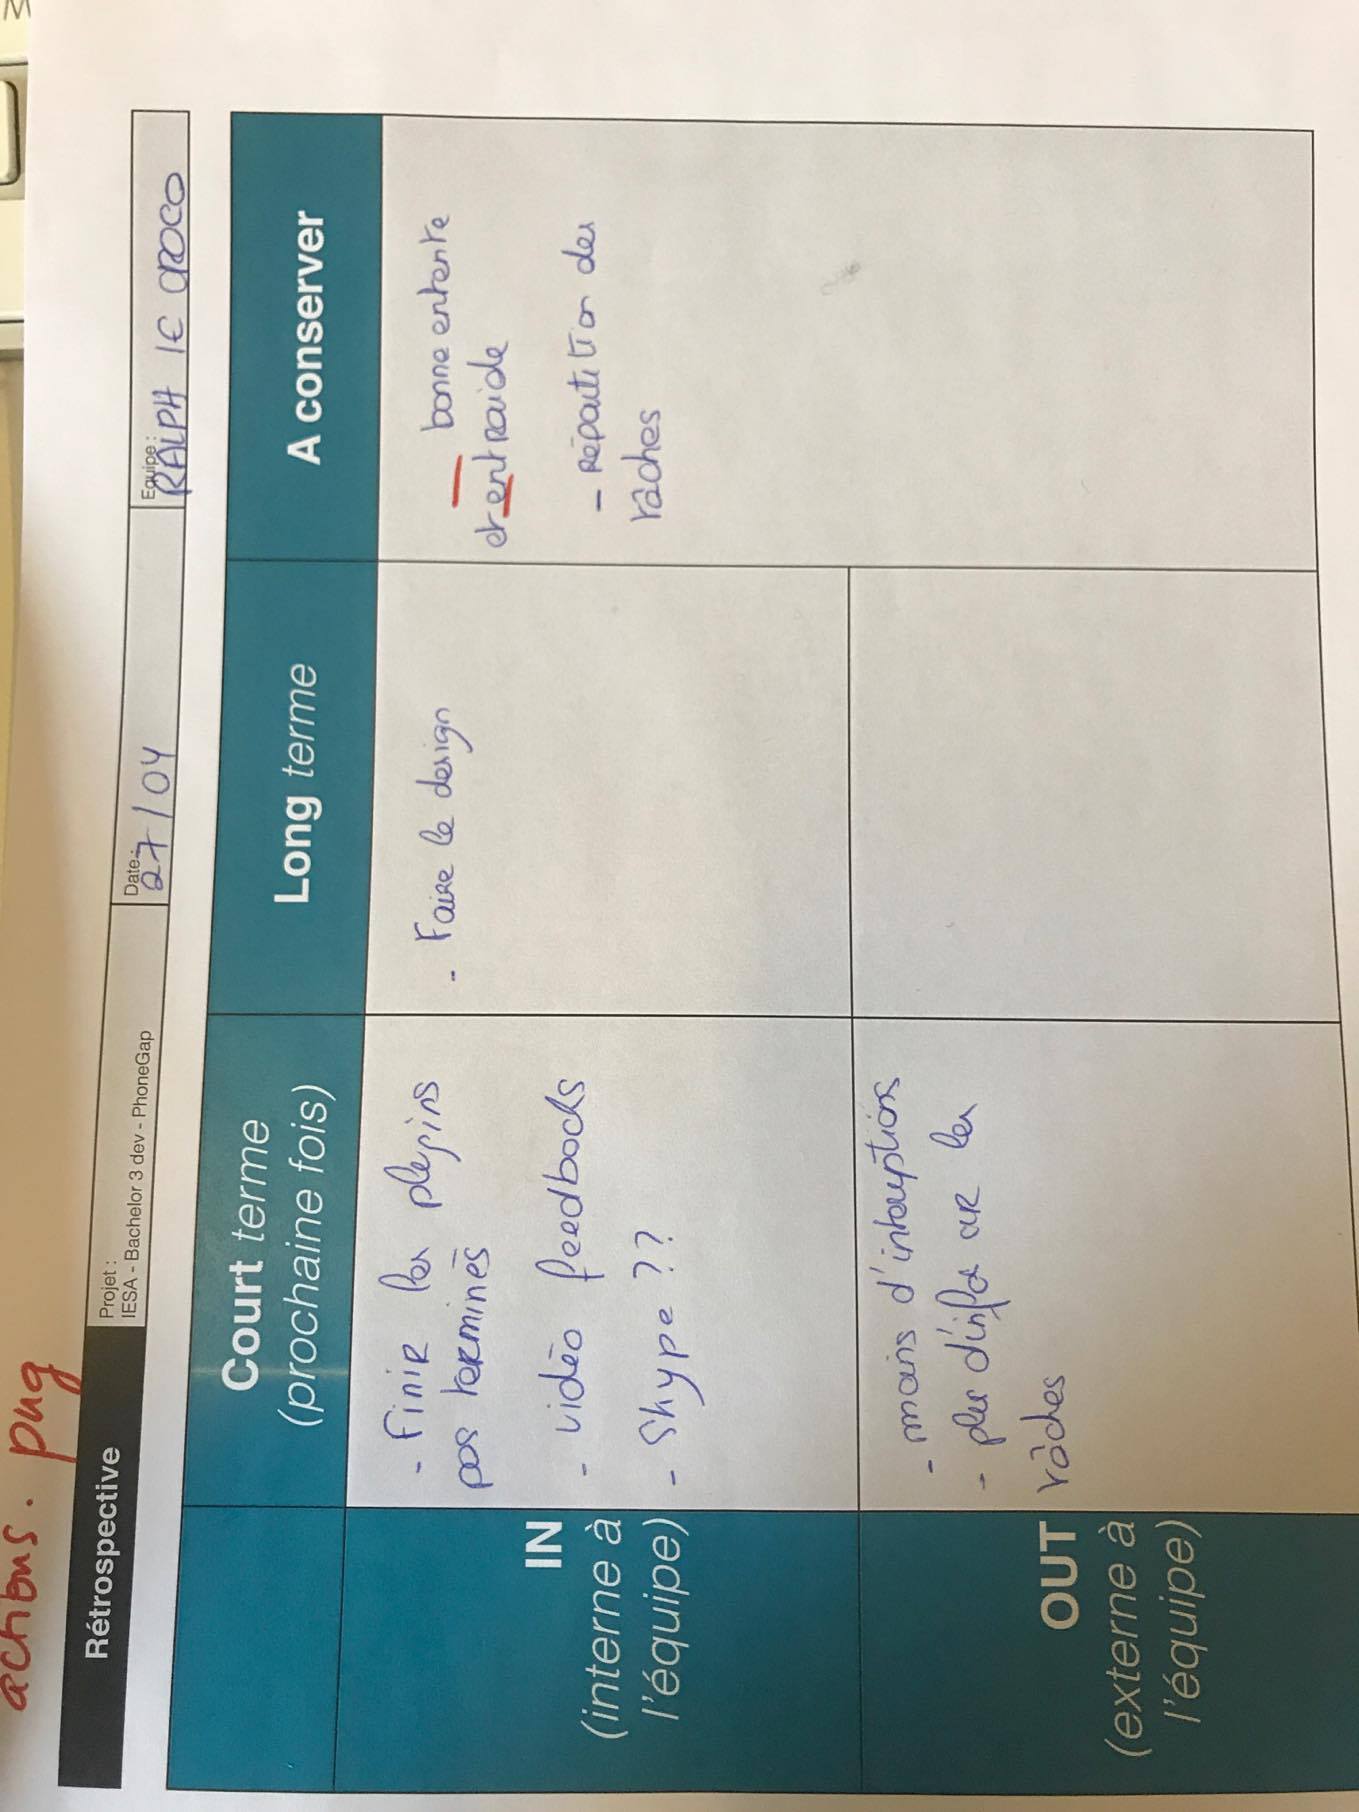 actions.png
Rétrospective
Projet :
IESA - Bachelor 3 dev - PhoneGap
Date :
27/04
Equipe :
RALPH lE CROCO
Court terme
(prochaine fois)
Long terme
A conserver
IN
(interne à
l'équipe)
- Finir les plugins
pas terminés
- vidéo feedbacks
- Skype ??
- Faire le design
- bonne entente
et entraide
- Répartition des
tâches
OUT
(externe à
l'équipe)
- moins d'interuptions
- plus d'infos sur les
tâches